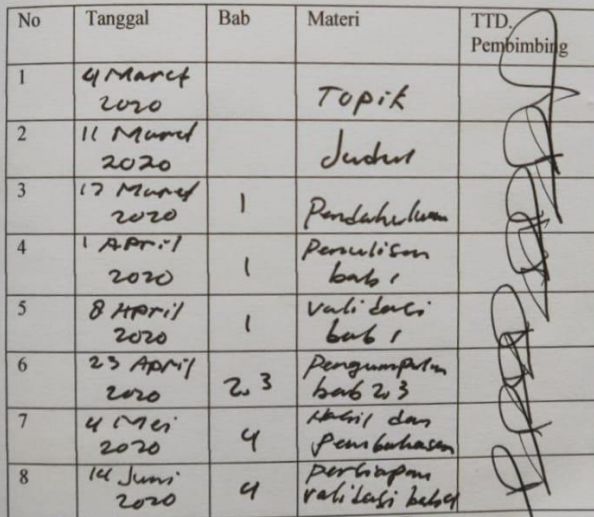 No Tanggal Bab Materi TTD.
Pembimbing
1 4 Maret
2020 Topik
2 11 Maret
2020 Judul
3 17 Maret
2020 1 Pendahuluan
4 1 April
2020 1 Penulisan
bab 1
5 8 April
2020 1 validasi
bab 1
6 23 April
2020 2.3 Pengumpulan
bab 2.3
7 4 Mei
2020 4 Hasil dan
Pembahasan
8 14 Juni
2020 4 persiapan
validasi bab 4